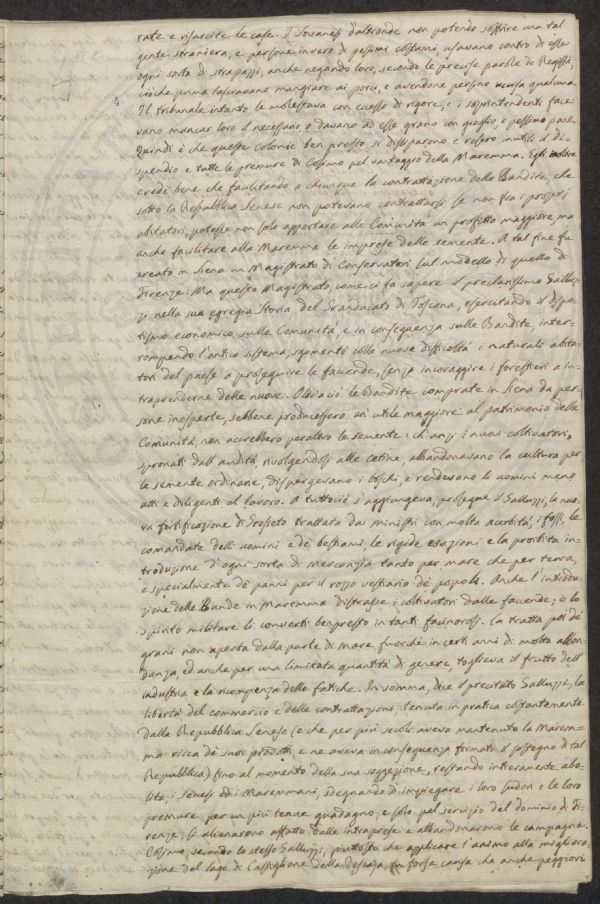 rate e risarcite le case. I Sovanesi d'altronde non potendo soffrire una tal
gente straniera, e persone invero di pessimi costumi, usavano contro di esse
ogni sorta di strapazzi, anche negando loro, secondo le precise parole de
ciò che prima lasciavano mangiare ai porci, e avendone persino uccisa qualcuna.
Il tribunale intanto le molestava con eccesso di rigore, e i soprintendenti face-
vano mancar loro il necessario, o davano ad esse grano con gioglio, e pessimo pane.
Quindi è che queste colonie ben presto si dissiparono e resero inutili il di-
spendio e tutte le premure di Cosimo pel vantaggio della Maremma. Egli
credè bene che facilitando a chiunque la contrattazione delle Bandite, che
sotto la Repubblica Senese non potevano contrattarsi se non fra i proprj
abitatori, potesse non solo apportare alle Comunità un profitto maggiore, ma
anche facilitare alla Maremma le imprese delle semente. A tal fine fu
creato in Siena un Magistrato di Conservatori sul modello di quello di
Firenze. Ma questo Magistrato, come ci fa sapere il preclarissimo Galluz-
zi nella sua egregia Storia del Granducato di Toscana, esercitando il dispo-
tismo economico sulle Comunità, e in conseguenza sulle Bandite, inter-
rompendo l'antico sistema, sgomentò colle nuove difficoltà i naturali abita-
tori del paese a proseguire le faccende, senza incoraggire i forestieri a in-
traprenderne delle nuove. Perciò le Bandite comprate in Siena da per-
sone inesperte, sebbene producessero un utile maggiore al patrimonio delle
Comunità, non accrebbero peraltro le semente: ch'anzi i nuovi coltivatori,
spronati dall'avidità, rivolgendosi alle cetine, abbandonavano la cultura per
le semente ordinarie, dispergevano i boschi, e rendevano li uomini meno
atti e diligenti al lavoro. A tuttociò s'aggiungeva, prosegue il Galluzzi, la nuo-
va fortificazione di Grosseto trattata dai ministri con molta acerbità, i fossi, le
comandate delli uomini e de' bestiami, le rigide esazioni e la proibita in-
troduzione d'ogni sorta di mercanzia tanto per mare che per terra,
e specialmente de' panni per il rozzo vestiario de' popoli. Anche l'introdu-
zione delle Bande in Maremma distrasse i coltivatori dalle faccende; e lo
spirito militare li convertì benpresto in tanti facinorosi. La tratta poi de'
grani non aperta dalla parte di mare fuorchè in certi anni di molta abbon-
danza, ed anche per una limitata quantità di genere, toglieva il frutto dell'
industria e la ricompenza delle fatiche. In somma, dice il precitato Galluzzi, la
libertà del commercio e delle contrattazioni, tenuta in pratica costantemente
dalla Repubblica Senese (e che per più secoli aveva mantenuto la Marem-
ma ricca de' suoi prodotti e ne aveva in conseguenza formato il sostegno di tal
Repubblica) fino al momento della sua soggezione, restando intieramente abo-
lita, i Senesi ed i Maremmani, sdegnando d'impiegare i loro sudori e le loro
premure per un più tenue guadagno, e solo pel servizio del dominio di Fi-
renze, si alienarono affatto dalle intraprese e abbandonarono le campagne.
Cosimo, secondo lo stesso Galluzzi, piuttosto che applicare l'animo alla migliora-
zione del lago di Castiglione della Pescaja, fu forse causa che anche peggiorò